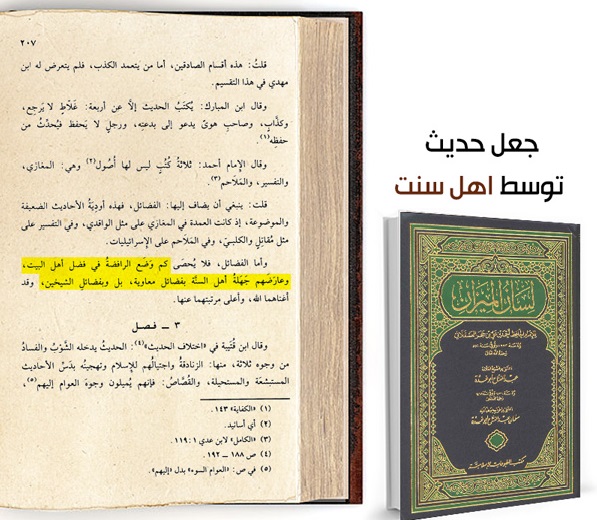 ٢٠٧
قلتُ: هذه أقسام الصادقين، أما من يتعمد الكذب، فلم يتعرض له ابن
مهدي في هذا التقسيم.
وقال ابن المبارك: يُكتَبُ الحديث إلاَّ عن أربعة: غَلَّاطٍ لا يَرجع،
وكذَّابٍ، وصاحبِ هوىً يدعو إلى بدعتِه، ورجلٍ لا يَحفظ فيُحدِّث من
حفظِه(١).
وقال الإمام أحمد: ثلاثةُ كُتُبٍ ليس لها أُصُول(٢) وهي: المغازي،
والتفسير، والمَلَاحم(٣).
قلت: ينبغي أن يضاف إليها: الفضائل، فهذه أوديَةُ الأحاديث الضعيفة
والموضوعة، إذ كانت العمدة في المغازي على مثل الواقدي، وفي التفسير على
مثل مُقاتِلٍ والكلبيّ، وفي المَلاحم على الإسرائيليات.
وأما الفضائل، فلا يُحصَى كم وَضَع الرافضةُ في فضل أهل البيت،
وعارَضَهم جَهَلَةُ أهل السنَّة بفضائل معاوية، بل وبفضائلِ الشيخين، وقد
أغناهما الله، وأعلى مرتبتهما عنها.
٣ ــ فصل
وقال ابن قُتَيبة في «اختلاف الحديث»(٤): الحديثُ يدخله الشَّوْبُ والفسادُ
من وجوه ثلاثة، منها: الزنادقةُ واجتيالُهم للإسلام وتهجينُه بدَسِّ الأحاديث
المستبشَعة والمستحيلة، والقُصَّاصُ: فإنهم يُميلون وجوهَ العوام إليهم(٥)،
(١) «الكفاية» ١٤٣.
(٢) أي أسانيد.
(٣) «الكامل» لابن عدي ١:١١٩.
(٤) ص ١٨٨ ــ ١٩٢.
(٥) في ص: «العوام السوء» بدل «إليهم».
جعل حدیث
توسط اهل سنت
لسان الميزان